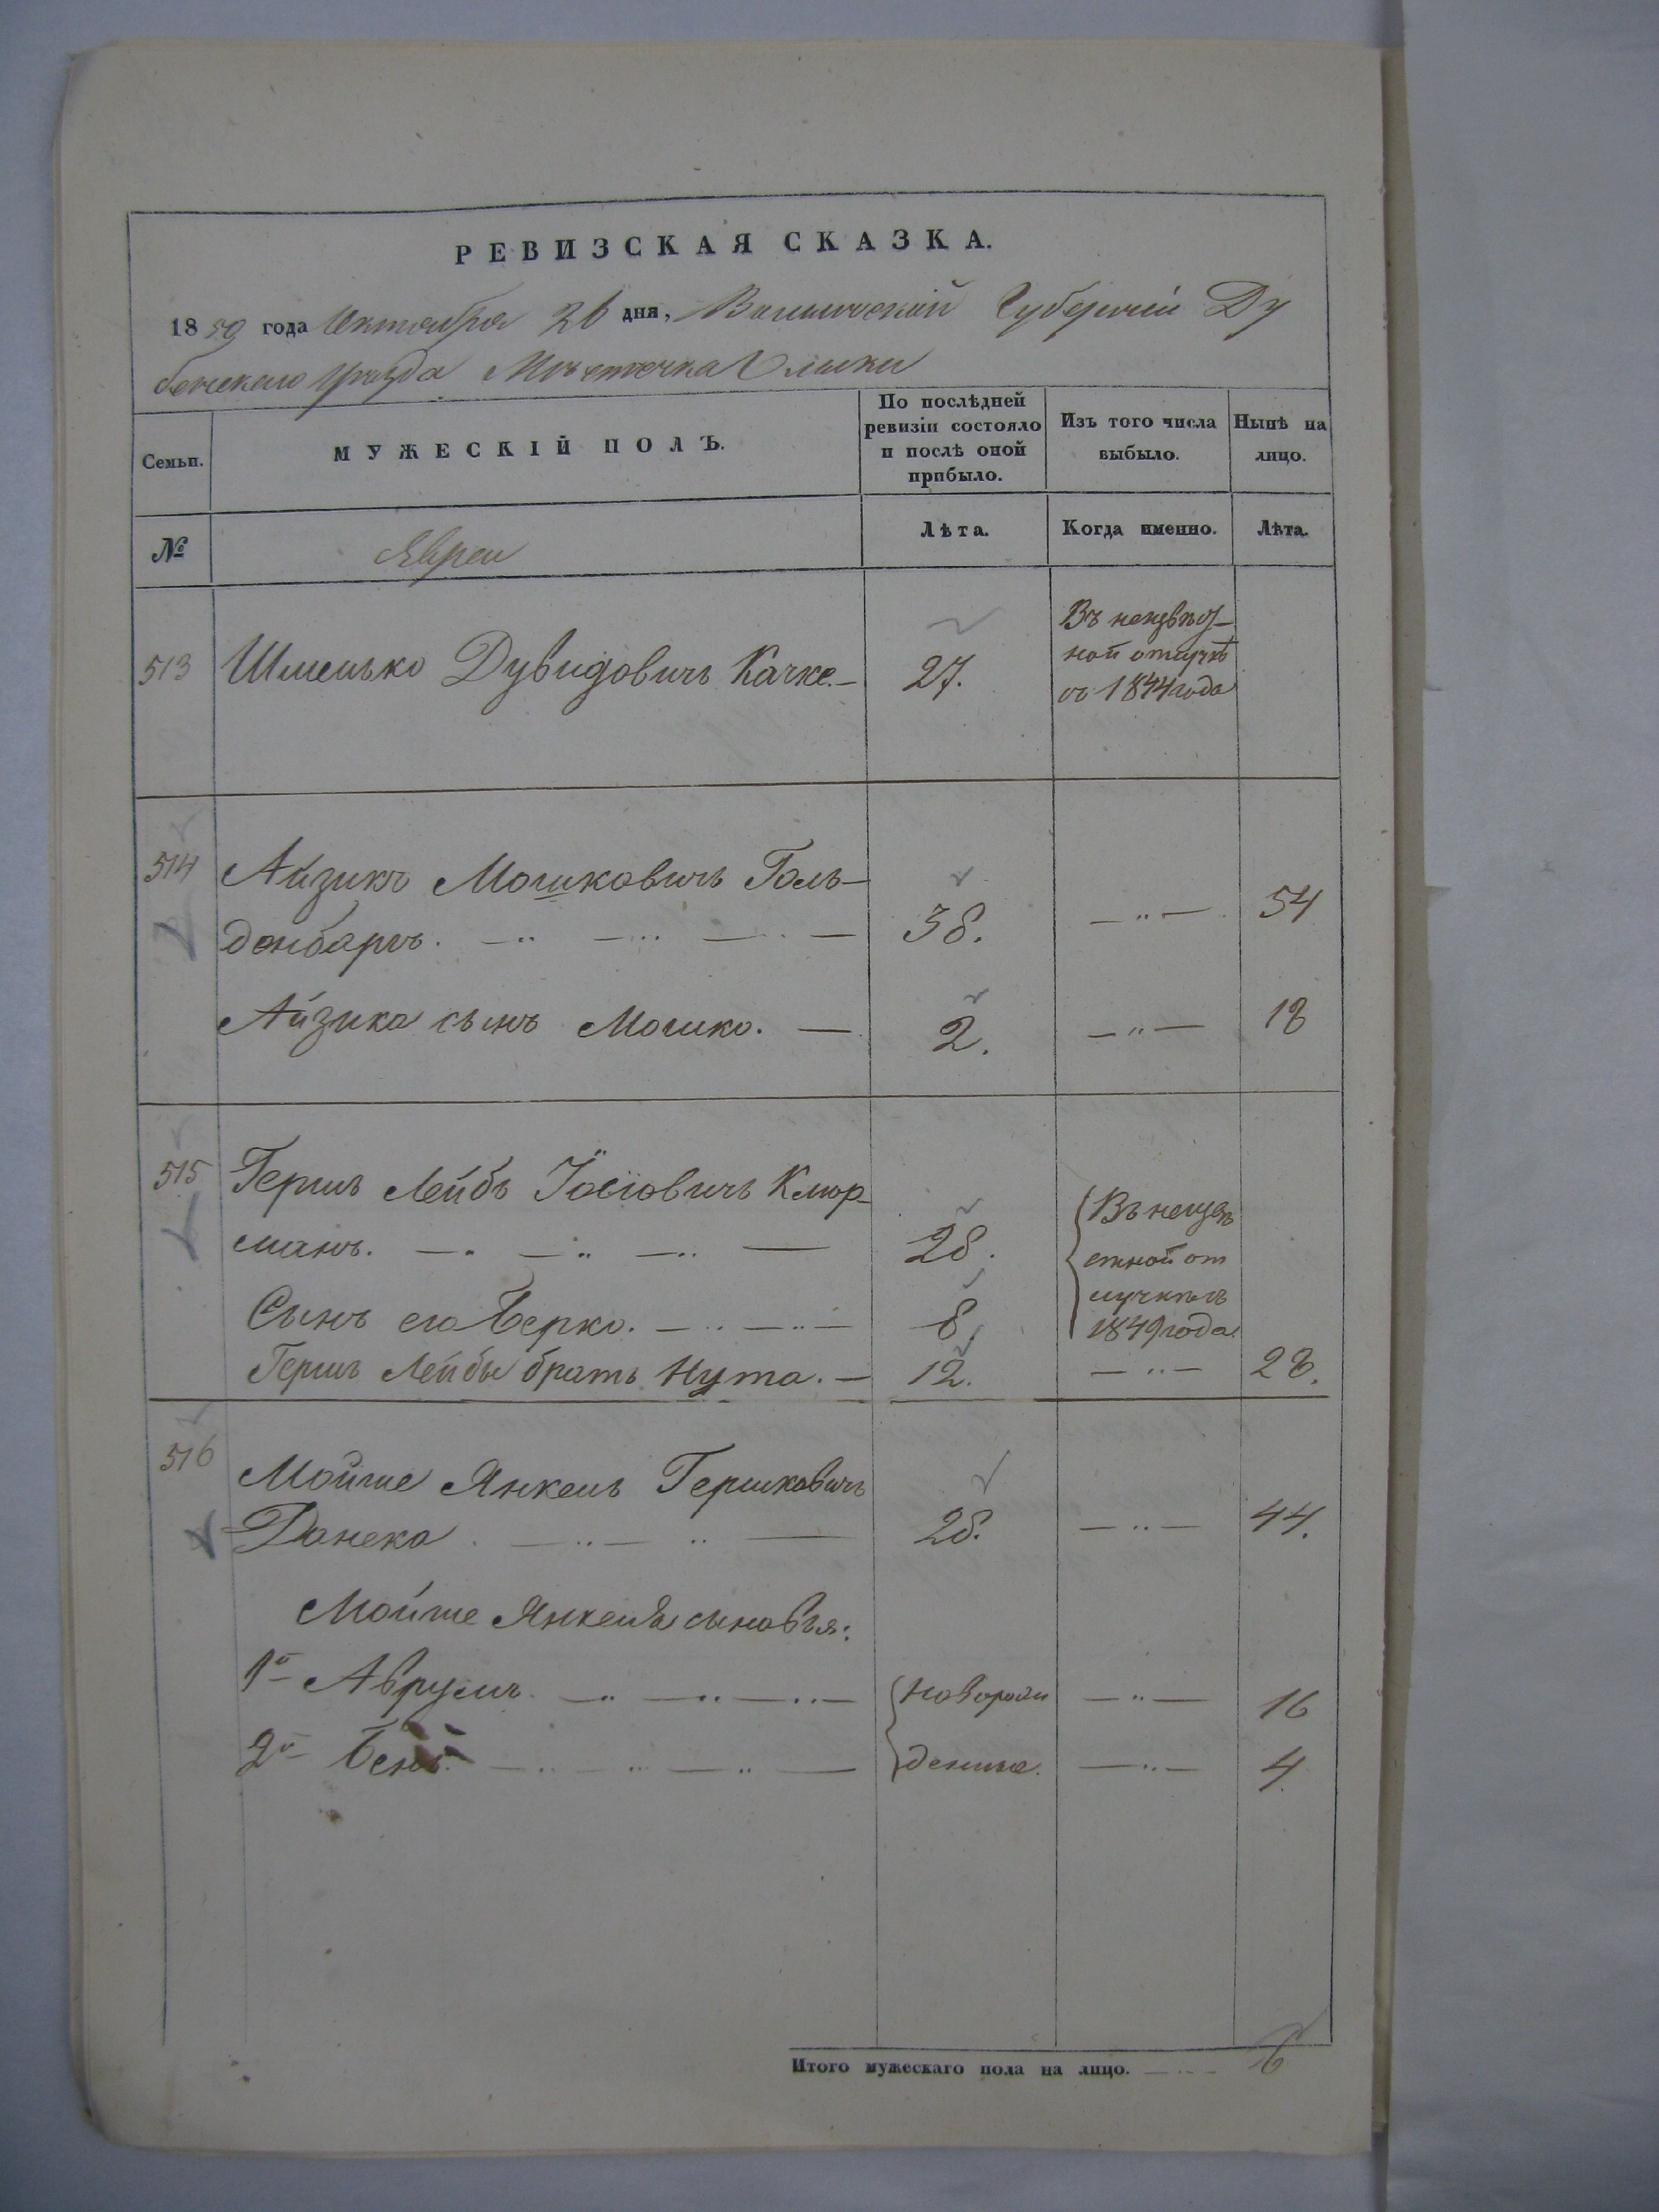 РЕВИЗСКАЯ СКАЗКА.
1850 года Октября 26 дня, Волынской Губерніи Ду
бенскаго уѣзда Мѣстечка Олыки
Семьи.
МУЖЕСКІЙ ПОЛЪ.
По послѣдней ревизіи состояло и послѣ оной прибыло.
Изъ того числа выбыло.
Нынѣ на лицо.
№
Евреи
Лѣта.
Когда именно.
Лѣта.
513 Шмелько Дувидовичъ Качке. — 27. Въ неизвѣст-
ной отлучкѣ
съ 1844 года
514 Айзикъ Мошковичъ Голь-
денбаргъ. — 38. — 54
Айзика сынъ Мошко. — 2. — 18
515 Гершъ Лейбъ Іосіовичъ Клюр-
манъ. — 28. Въ неизвѣ
стной от
Сынъ его Берко. — 8. лучкѣ съ
1849 года
Гершъ Лейбы братъ Нута. — 12. — 28.
516 Мойше Янкель Гершковичъ
Данека — 28. — 44.
Мойше Янкеля сыновья:
1й Аврумъ. — новорож — 16
2й Бенъ. — денные. — 4
Итого мужескаго пола на лицо. — 6